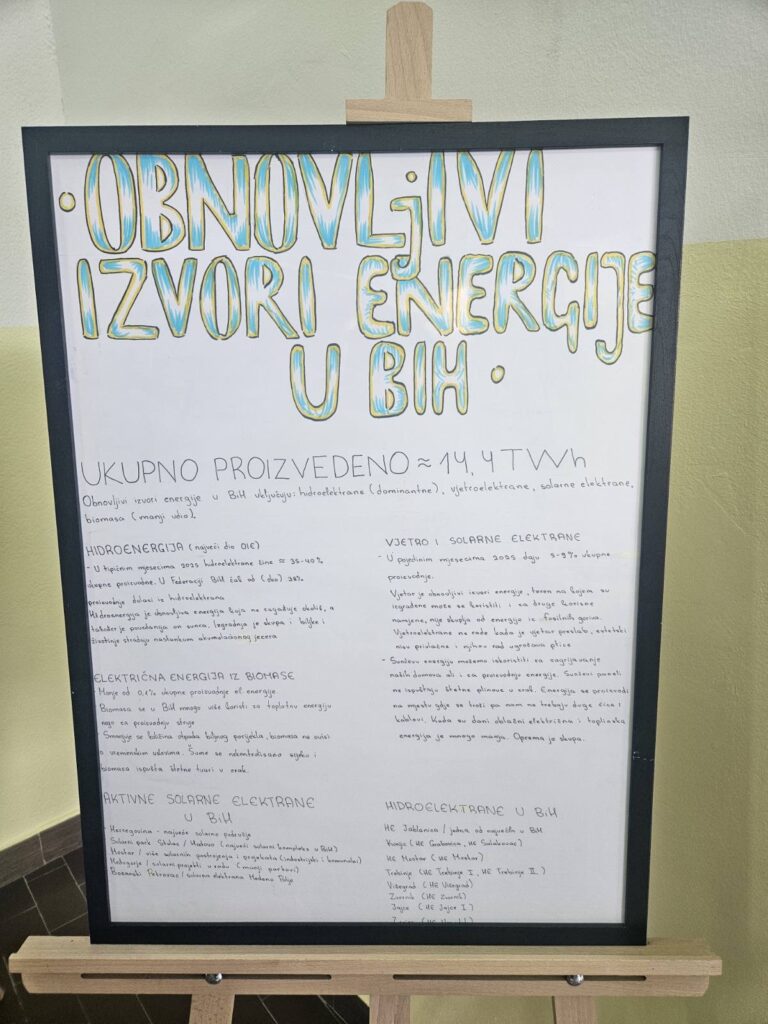 •OBNOVLjIVI
IZVORI ENERGIJE
U BIH•
UKUPNO PROIZVEDENO ≈ 14,4 TWh
Obnovljivi izvori energije u BiH uključuju: hidroelektrane (dominantne), vjetroelektrane, solarne elektrane,
biomasa (manji udio).
HIDROENERGIJA (najveći dio OIE)
- U tipičnim mjesecima 2025 hidroelektrane čine ≈ 35-40%
ukupne proizvodnje. U Federaciji BiH čak od (oko) 38%
proizvodnje dolazi iz hidroelektrana
Hidroenergija je obnovljiva energija koja ne zagađuje okoliš, a
također je povezana sa sunca. Izgradnja je skupa i biljke i
životinje stradaju nastankom akumulacionog jezera
ELEKTRIČNA ENERGIJA IZ BIOMASE
- Manje od 0,1% ukupne proizvodnje el energije.
Biomasa se u BiH mnogo više koristi za toplotnu energiju
nego za proizvodnju struje
Smanjuje se količina otpada biljnog porijekla, biomasa ne ovisi
o vremenskim uslovima. Šume se nekontrolisano sijeku i
biomasa ispušta štetne tvari u zrak.
AKTIVNE SOLARNE ELEKTRANE
U BiH
Hercegovina - najveće solarno područje
Solarni park Stolac / Hodovo (najveći solarni kompleks u BiH)
Mostar / više solarnih postrojenja i projekata (industrijski i komunalni)
Međugorje / solarni projekti u radu (manji parkovi)
Bosanski Petrovac / solarna elektrana Medeno Polje
VJETRO I SOLARNE ELEKTRANE
- U pojedinim mjesecima 2025 daju 5-9% ukupne
proizvodnje.
Vjetar je obnovljivi izvor energije, teren na kojem su
izgrađene može se koristiti i za druge korisne
namjene, nije skuplja od energije iz fosilnih goriva.
Vjetroelektrane ne rade kada je vjetar preslab, estetski
nisu privlačne i njihov rad ugrožava ptice
- Sunčevu energiju možemo iskoristiti za zagrijavanje
naših domova ali i za proizvodnju energije. Sunčevi paneli
ne ispuštaju štetne plinove u zrak. Energija se proizvodi
na mjestu gdje se troši pa nam ne trebaju duge žice i
kablovi. Kada su dani oblačni električna i toplinska
energija je mnogo manja. Oprema je skupa.
HIDROELEKTRANE U BiH
HE Jablanica / jedna od najvećih u BiH
Konjic (HE Grabovica, HE Salakovac)
HE Mostar (HE Mostar)
Trebinje (HE Trebinje I, HE Trebinje II)
Višegrad (HE Višegrad)
Zvornik (HE Zvornik)
Jajce (HE Jajce I)